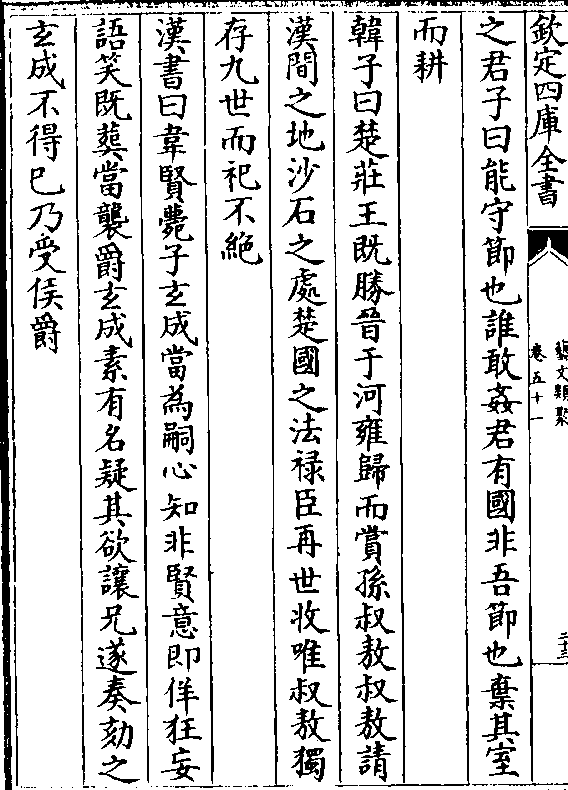 欽定四庫全書
藝文類聚
卷五十一
二十三
之君子曰能守節也誰敢姦君有國非吾節也棄其室
而耕
韓子曰楚莊王既勝晉于河雍歸而賞孫叔敖叔敖請
漢間之地沙石之處楚國之法祿臣再世收唯叔敖獨
存九世而祀不絶
漢書曰韋賢薨子玄成當為嗣心知非賢意即佯狂妄
語笑既葬當襲爵玄成素有名疑其欲讓兄遂奏劾之
玄成不得已乃受侯爵